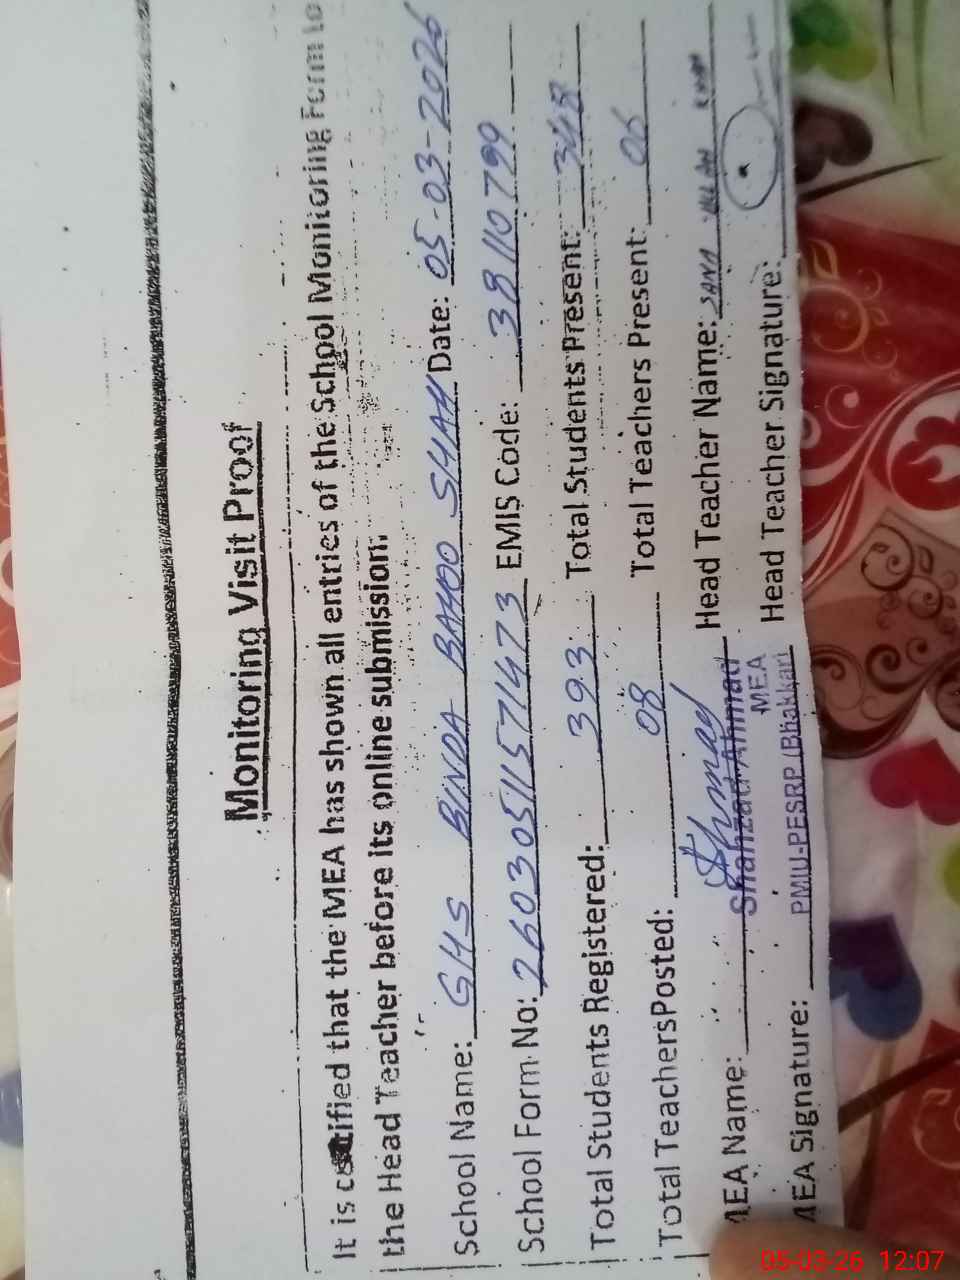 Monitoring Visit Proof
It is certified that the MEA has shown all entries of the School Monitoring Form to
the Head Teacher before its online submission.
School Name: GHS BINDA BAHOO SHAH Date: 05-03-2026
School Form No: 260305115714 73 EMIS Code: 38110799
Total Students Registered: 393 Total Students Present: 348
Total TeachersPosted: 08 Total Teachers Present: 06
MEA Name: Shahzad Ahmad Head Teacher Name: SANA ULLAH KHAN
MEA
MEA Signature: PMIU-PESRP (Bhakkar) Head Teacher Signature:
05-03-26 12:07